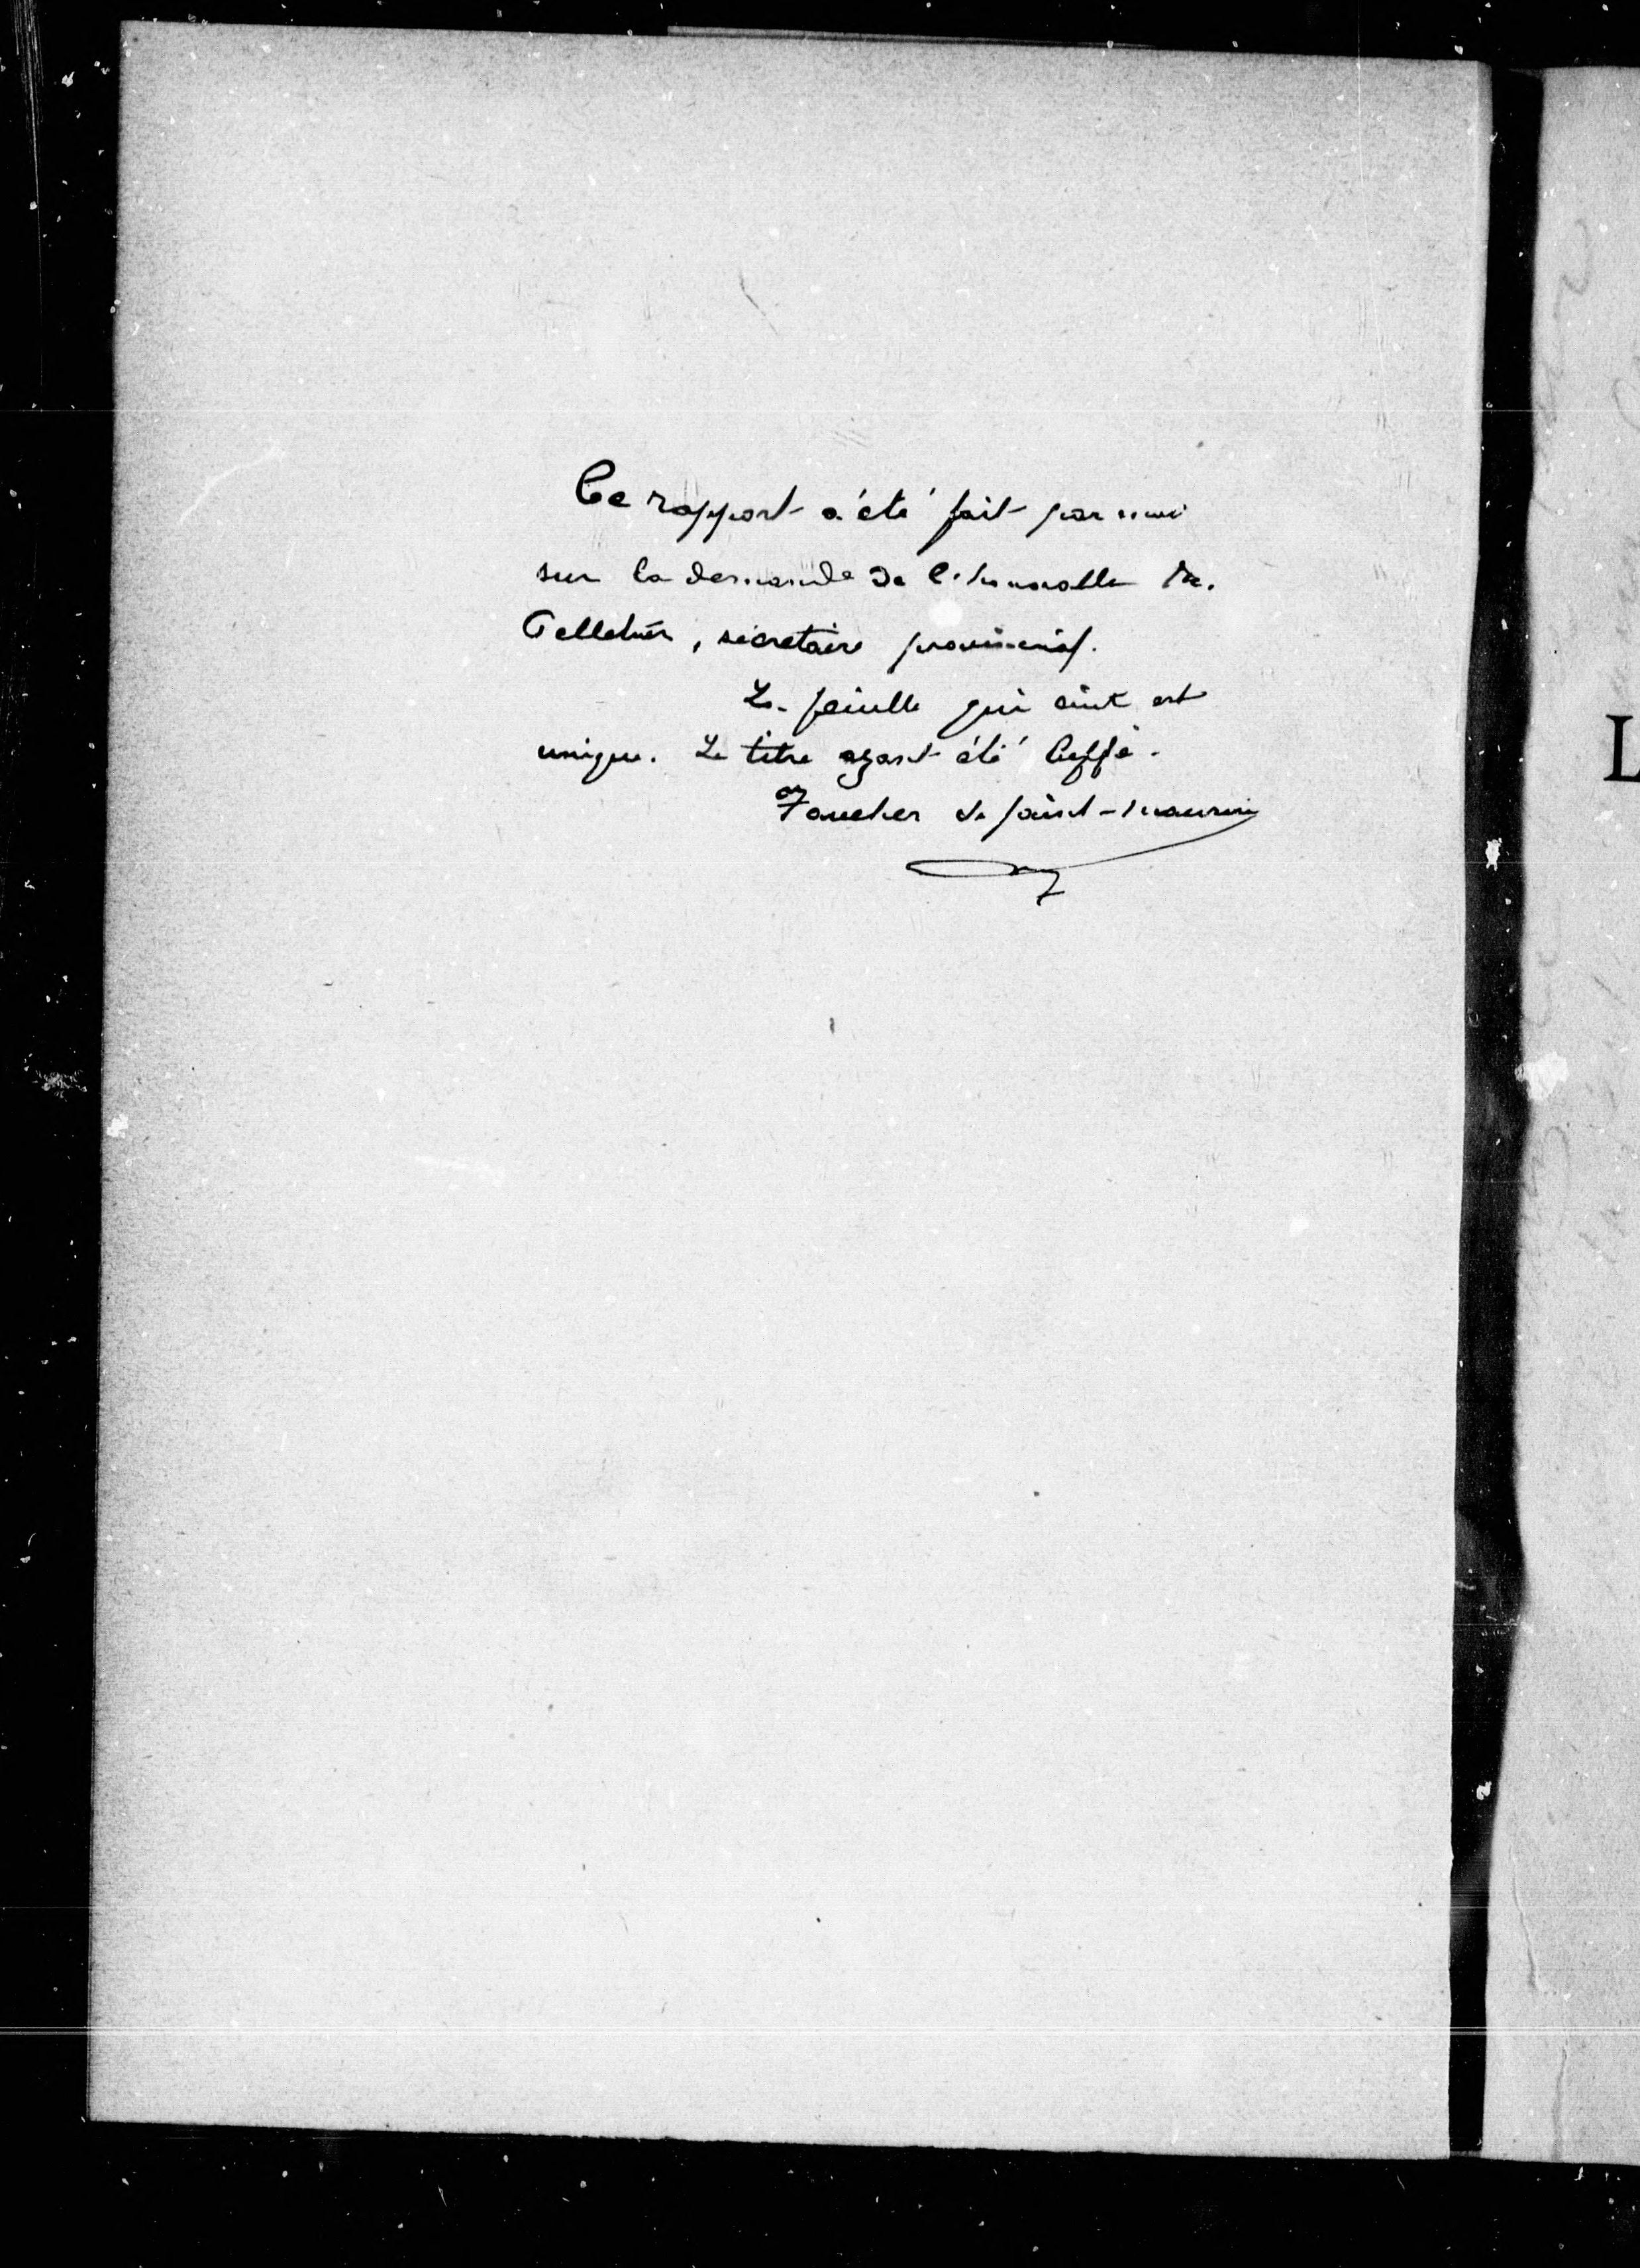 Ce rapport a été fait par moi
sur la demande de l'honorable M.
Pelletier, secrétaire provincial.
La feuille qui suit est
unique. Le titre ayant été biffé.
Faucher de Saint-Maurice
L